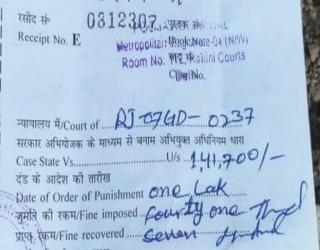 रसीद सं० 0312307
Receipt No. E
Metropolitan
Room No. Rohini Courts
No.
न्यायालय में/Court of RJ-07GD-0237
सरकार अभियोजक के माध्यम से बनाम अभियुक्त अधिनियम धारा
Case State Vs. U/s 1,41,700/-
दंड के आदेश की तारीख
Date of Order of Punishment one Lak
जुर्माने की रकम/Fine imposed fourty one
प्राप्त रकम/Fine recovered seven